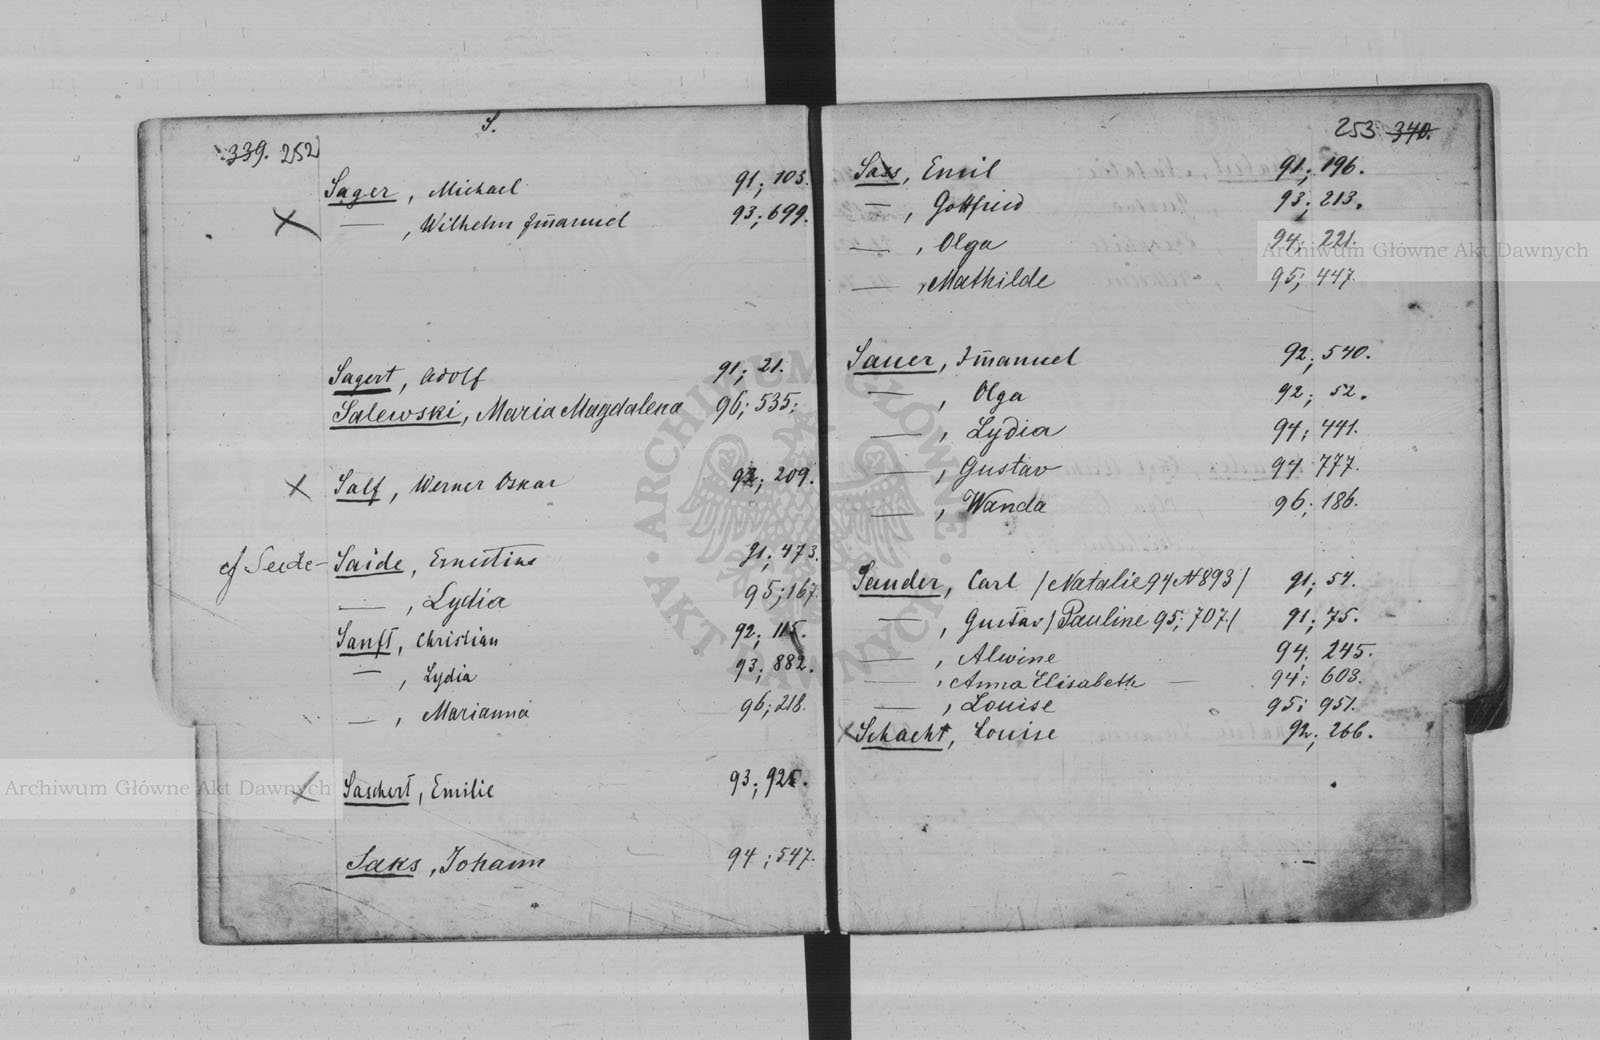 S.
339. 252
Sager, Michael 91; 103.
— , Wilhelm Im̄anuel 93; 699.
Sagert, Adolf 91; 21.
Salewski, Maria Magdalena 96; 535;
Salf, Werner Oskar 209.
cf Seide - Saide, Ernestine 91; 473.
— , Lydia 95; 167
Sanft, Christian 92; 115.
— , Lydia 93; 882.
— , Marianna 96; 218.
Saschert, Emilie 93; 925.
Saks, Johann 94; 547.
253 340.
Sass, Emil 91; 196.
— , Gottfried 93; 213.
— , Olga 94; 221.
— , Mathilde 95; 447.
Sauer, Im̄anuel 92; 540.
— , Olga 92; 52.
— , Lydia 94; 441.
— , Gustav 94 777.
— , Wanda 96; 186.
Sander, Carl /Natalie 94 N 893/ 91; 54.
— , Gustav /Pauline 95; 707./ 91; 75.
— , Alwine 94; 245.
— , Anna Elisabeth — 94; 603.
— , Louise 95; 951.
Schacht, Louise 92; 266.
Archiwum Główne Akt Dawnych
Archiwum Główne Akt Dawnych
ARCHIWUM GŁÓWNE AKT DAWNYCH